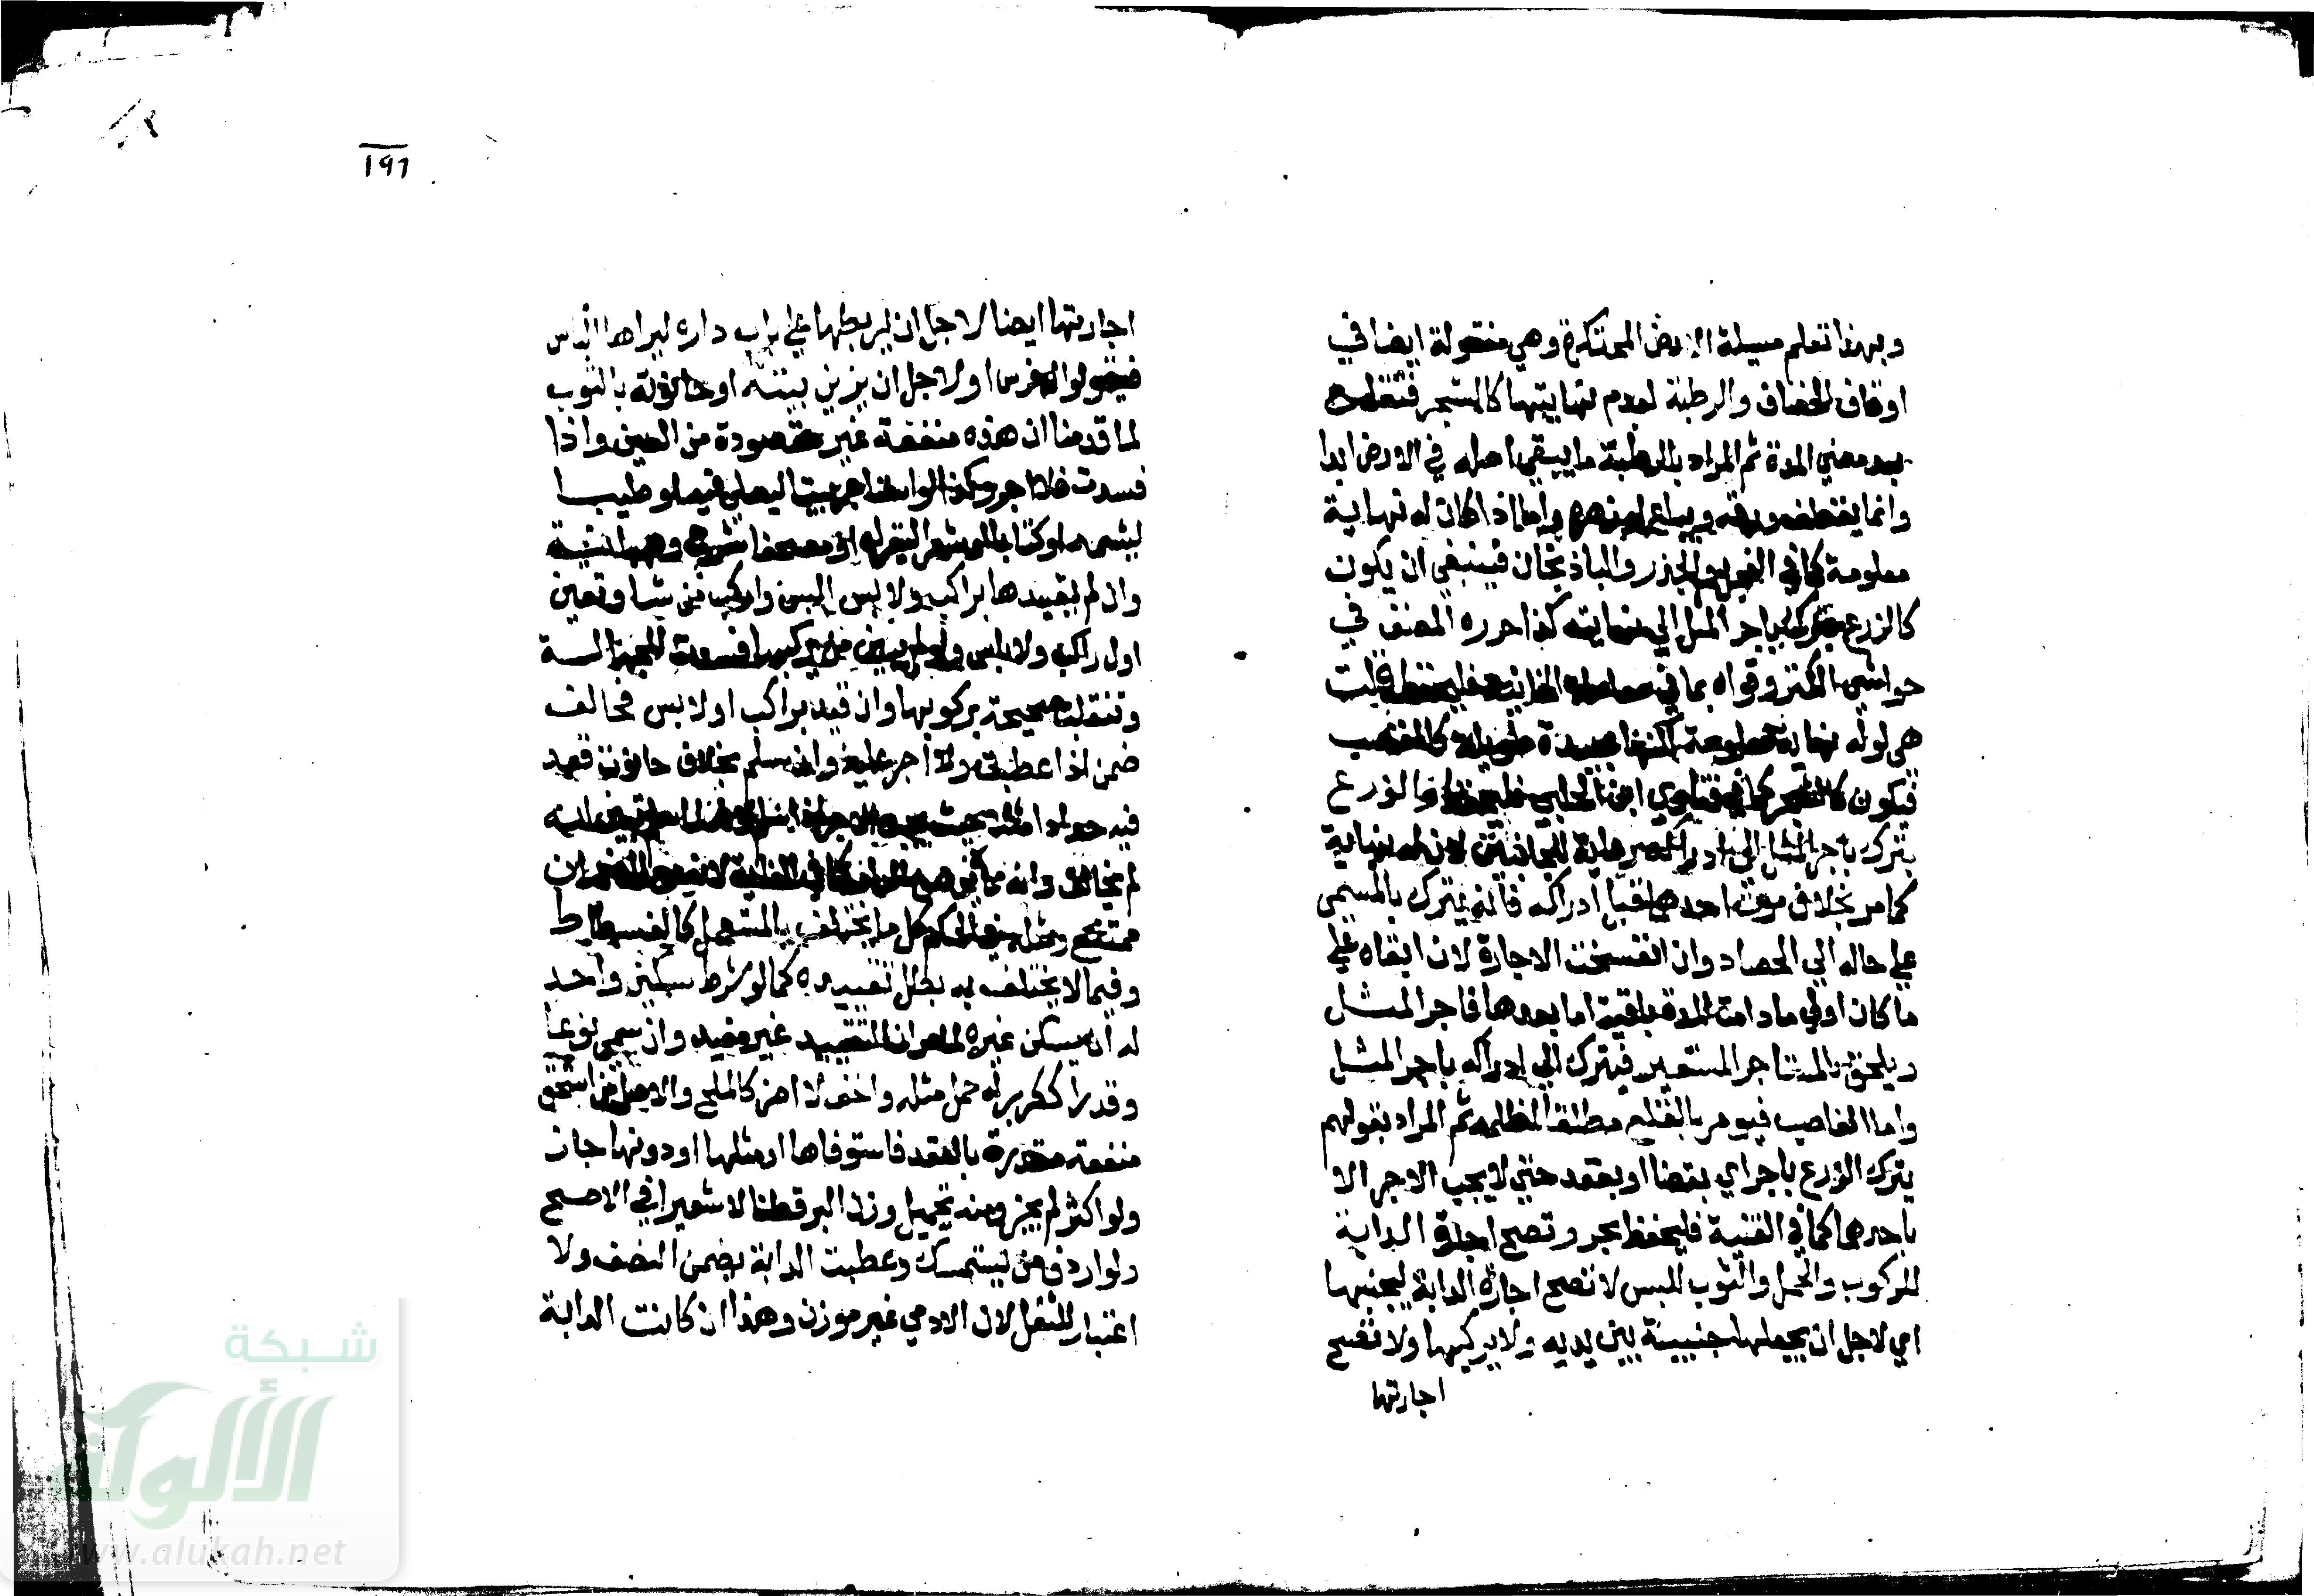 وبهذا تعلم مسيلة الارض المحتكرة وهي منقولة ايضا في
اوقاف الخصاف والرطبة لعدم نهايتها كالشجر فتقلع
بعد مضي المدة ثم المراد بالرطبة ما يبقي اصله في الارض ابدا
وانما يقطف ورقه ويباع او زهره واما اذا كان له نهاية
معلومة كما في الفجل والجزر والباذنجان فينبغي ان يكون
كالزرع يترك باجر المثل الي نهايته كذا حرره المصنف في
حواشي الكنز وقواه بما في معاملة الخانية فليحفظ قلت
هي لو له نهاية معلومة لكنها بعيدة طويلة كالقصب
فيكون كالشجر كما في فتاوي ابن الحلبي فليحفظ والزرع
يترك باجر المثل الي ادراكه رعاية للجانبين لان له نهاية
كما مر بخلاف موت احدهما قبل ادراكه فانه يترك بالمسمي
علي حاله الي الحصاد وان انفسخت الاجارة لان ابقاه علي
ما كان اولي مادامت المدة باقية اما بعدها فاجر المثل
ويلحق بالمستاجر المستعير فيترك الي ادراكه باجر المثل
واما الغاصب فيومر بالقلع مطلقا لظلمه ثم المراد بقولهم
يترك الزرع باجر اي بقضا او بعقد حتي لا يجب الاجر الا
باحدهما كما في القنية فليحفظ بحر وتصح اجارة الدابة
للركوب والحمل والثوب للبس لا تصح اجارة الدابة ليجنبها
اي لاجل ان يجعلها جنيبة بين يديه ولا يركبها ولا تصح
اجارتها
١٩٦
اجارتها ايضا لاجل ان يربطها علي باب داره ليراها الناس
فيقولوا له فرس او لاجل ان يزين بيته او حانوته بالثوب
لما قدمنا ان هذه منفعة غير مقصودة من العين واذا
فسدت فلا اجر وكذا لو استاجر بيتا ليصلي فيه او طيبا
ليشمه او كتابا ولو شعرا ليقراه او مصحفا شرح وهبانية
وان لم يقيدها براكب ولابس البس واركب من شا وتعين
اول راكب ولابس وان لم يبين من يركبها فسدت للجهالة
وتنقلب صحيحة بركوبها وان قيد براكب او لابس فخالف
ضمن اذا عطبت ولا اجر عليه وان سلم بخلاف حانوت قعد
فيه حدادا مثلا حيث يجب الاجر اذا سلم لانه لما سلم تبين انه
لم يخالف وانه مما لا يوهن الدار كما في الغاية لانه مع الضمان
ممتنع ومثله في الحكم كل ما يختلف بالمستعمل كالفسطاط
وفيما لا يختلف به بطل تقييده كما لو شرط سكني واحد
له ان يسكن غيره لما مر ان التقييد غير مفيد وان سمي نوعا
وقدرا ككر بر له حمل مثله واخف لا اضر كالملح والاصل ان من استحق
منفعة مقدرة بالعقد فاستوفاها او مثلها او دونها جاز
ولو اكثر لم يجز ومنه تحميل وزن البر قطنا لا شعيرا في الاصح
ولو اردف من يستمسك وعطبت الدابة يضمن النصف ولا
اعتبار للثقل لان الادمي غير موزون وهذا ان كانت الدابة
شبكة
الألوكة
www.alukah.net